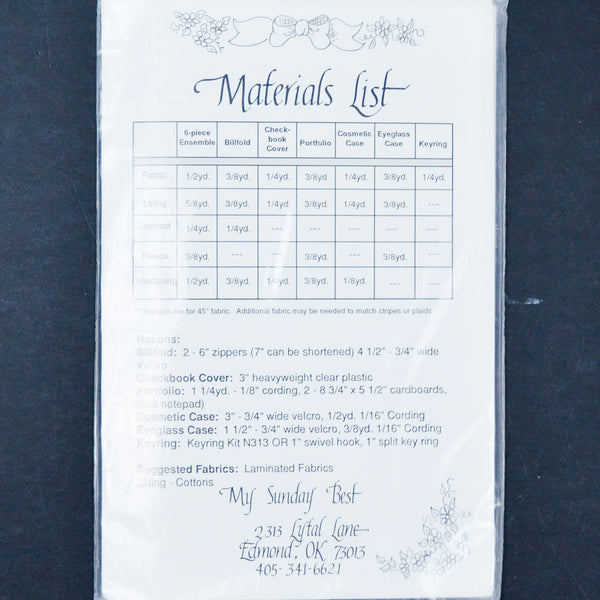 Materials List
6-piece Ensemble Billfold Check-book Cover Portfolio Cosmetic Case Eyeglass Case Keyring
Fabric 1/2yd. 3/8yd. 1/4yd. 3/8yd. 1/4yd. 3/8yd. 1/4yd.
Lining 5/8yd. 3/8yd. 1/4yd. 3/8yd. 1/4yd. 3/8yd. ---
Contrast 1/4yd. 1/4yd. --- --- --- --- ---
Fleece 3/8yd. --- --- 3/8yd. --- 3/8yd. ---
Interfacing 1/2yd. 3/8yd. 1/4yd. 3/8yd. 1/8yd. --- ---
*Yardages are for 45" fabric. Additional fabric may be needed to match stripes or plaids.
Notions:
Billfold: 2 - 6" zippers (7" can be shortened) 4 1/2" - 3/4" wide
Velcro
Checkbook Cover: 3" heavyweight clear plastic
Portfolio: 1 1/4yd. - 1/8" cording, 2 - 8 3/4" x 5 1/2" cardboards,
(5x8 notepad)
Cosmetic Case: 3" - 3/4" wide velcro, 1/2yd. 1/16" Cording
Eyeglass Case: 1 1/2" - 3/4" wide velcro, 3/8yd. 1/16" Cording
Keyring: Keyring Kit N313 OR 1" swivel hook, 1" split key ring
Suggested Fabrics: Larminated Fabrics
Lining - Cottons
My Sunday Best
2313 Lytal Lane
Edmond, OK 73013
405-341-6621